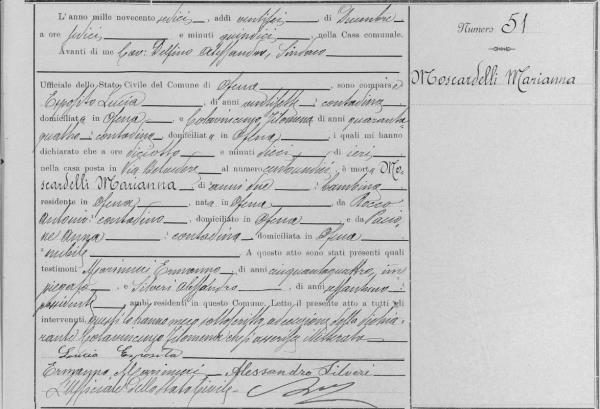 L'anno mille novecento sedici, addì ventisei di Dicembre
a ore sedici e minuti quindici, nella Casa comunale.
Avanti di me Cav. Delfino Alessandro, Sindaco
Numero 51
Moscardelli Marianna
Ufficiale dello Stato Civile del Comune di Ofena, sono comparsi
Esposito Lucia, di anni ventisette, contadina
domiciliata in Ofena, e Colavincenzo Filomena di anni quaranta
quattro, contadina domiciliata in Ofena, i quali mi hanno
dichiarato che a ore diciotto e minuti dieci di ieri
nella casa posta in Via al numero è morta Mo-
scardelli Marianna di anni due, bambina
residente in Ofena, nata in Ofena da Rocco
Antonio, contadino, domiciliato in Ofena e da
Anna, contadina domiciliata in Ofena
nubile. A questo atto sono stati presenti quali
testimoni Marinucci Ermanno, di anni cinquantaquattro, im-
piegato e Silveri Alessandro, di anni sessantuno
possidente, ambi residenti in questo Comune. Letto il presente atto a tutti gli
intervenuti, questi lo hanno meco sottoscritto, ad eccezione della dichia-
rante Colavincenzo Filomena illetterata
Lucia Esposito
Ermanno Marinucci Alessandro Silveri
L'Ufficiale dello Stato Civile